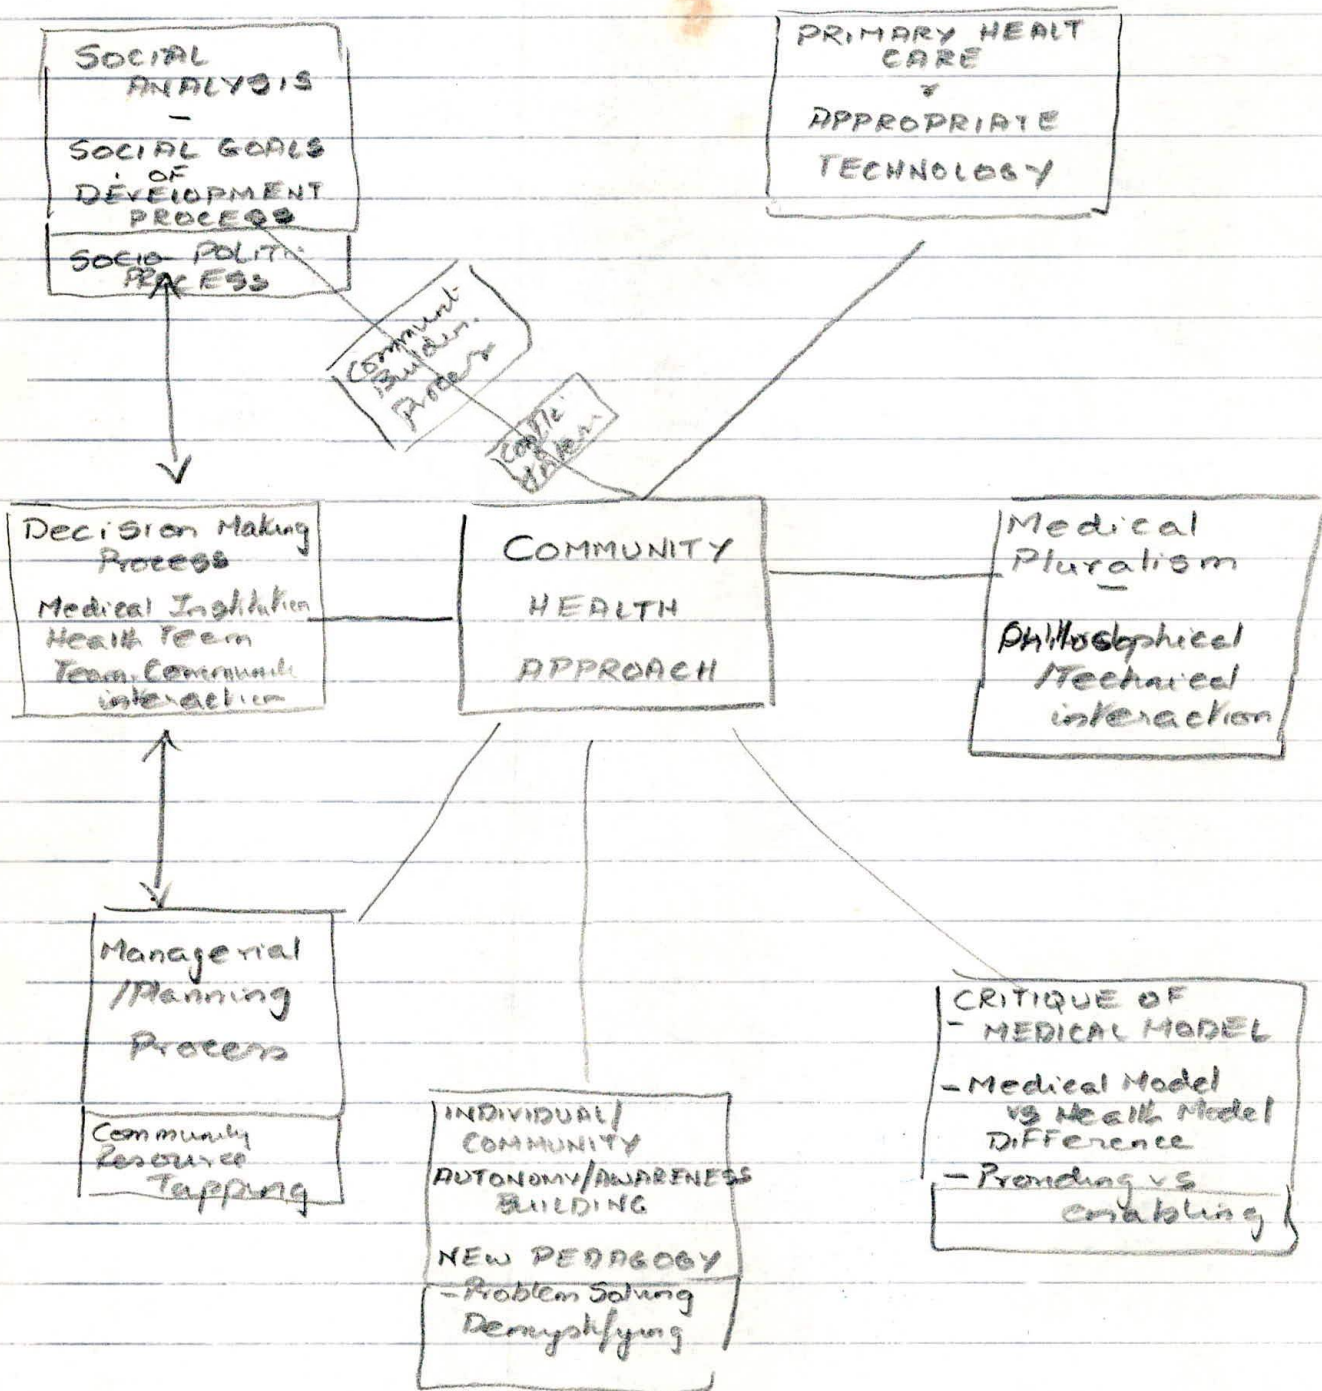 SOCIAL
ANALYSIS
-
SOCIAL GOALS
OF
DEVELOPMENT
PROCESS
SOCIO-POLITI
PROCESS
PRIMARY HEALT
CARE
&
APPROPRIATE
TECHNOLOGY
Communt
Buildin.
Process
Confli
Decision Making
Process
Medical Institution
Health Team
Team-Communit
interaction
COMMUNITY
HEALTH
APPROACH
Medical
Pluralism
-
Philosophical
/Technical
interaction
Managerial
/Planning
Process
Community
Resource
Tapping
INDIVIDUAL/
COMMUNITY
AUTONOMY/AWARENESS
BUILDING
NEW PEDAGOGY
-Problem Solving
Demystifying
CRITIQUE OF
- MEDICAL MODEL
- Medical Model
vs Health Model
DIFFerence
- Providing vs
enabling